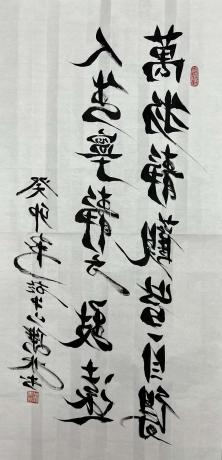 萬物靜觀皆自得
人生寧靜方致遠
癸卯年